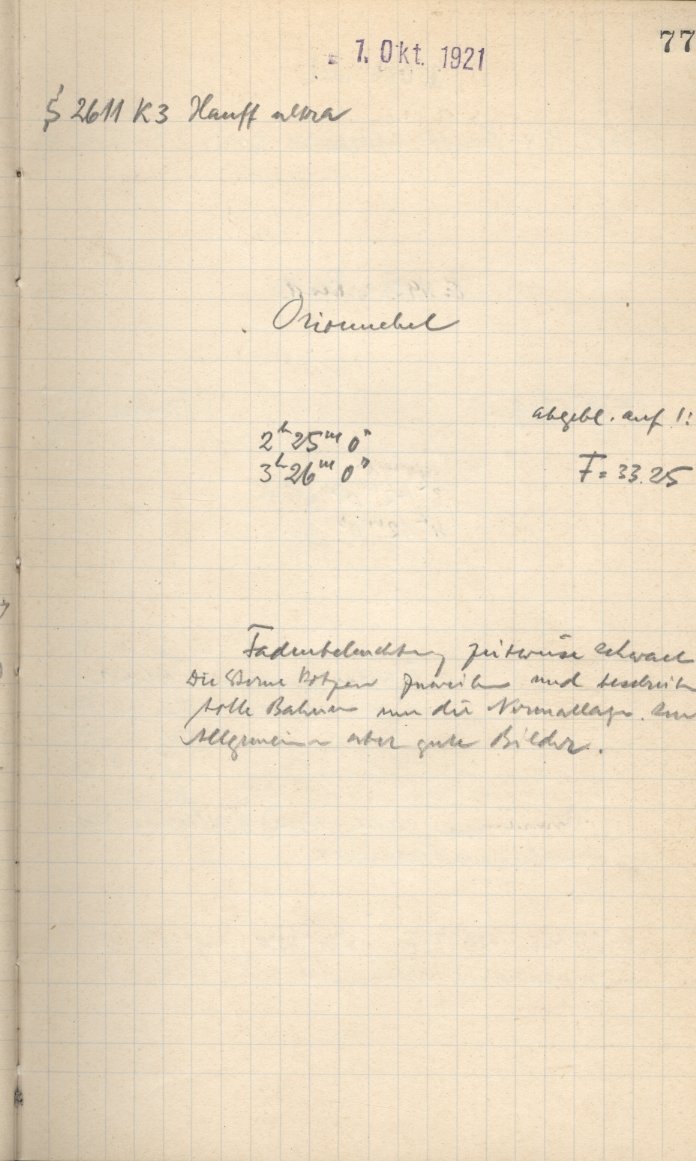 77
1. Okt. 1921
§ 2611 K3 Hauff ultra
Orionnebel
abgebl. auf 1:
2h 25m 0s
3h 26m 0s
F = 33.25
Fadenbeleuchtung zeitweise schwach
Die Sterne zuweilen und beschreiben
tolle Bahnen um die Normallage. Im
Allgemeinen aber gute Bilder.